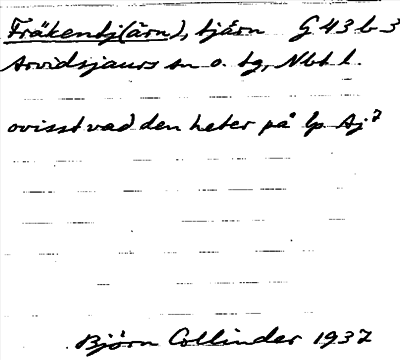 Fräkentj(ärn), tjärn G 43 b 3
Arvidsjaurs sn o. tg, Nbt l.
ovisst vad den heter på lp Aj⁷
Björn Collinder 1937